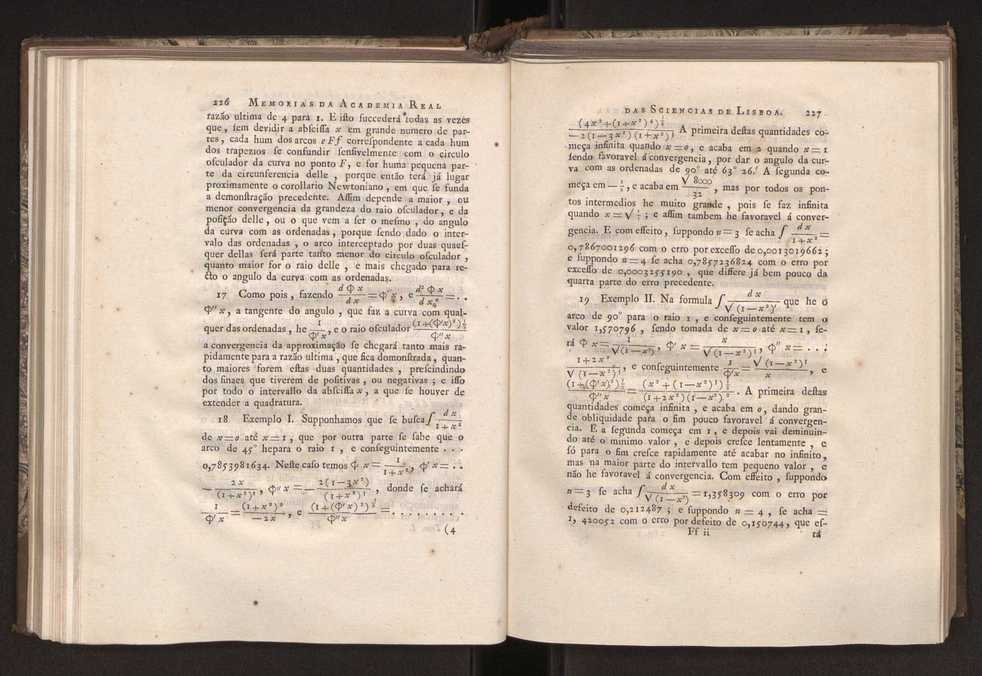 226 MEMORIAS DA ACADEMIA REAL
razão ultima de 4 para 1. E isto succederá todas as vezes
que, sem devidir a abscissa x em grande numero de par-
tes, cada hum dos arcos e F f correspondente a cada hum
dos trapezios se confundir sensivelmente com o circulo
osculador da curva no ponto F, e for huma pequena par-
te da circunserencia delle, porque então terá já lugar
proximamente o corollario Newtoniano, em que se funda
a demonstração precedente. Assim depende a maior, ou
menor convergencia da grandeza do raio osculador, e da
posição delle, ou o que vem a ser o mesmo, do angulo
da curva com as ordenadas, porque sendo dado o inter-
valo das ordenadas, o arco interceptado por duas quaes-
quer dellas será parte tanto menor do circulo osculador,
quanto maior for o raio delle, e mais chegado para re-
cto o angulo da curva com as ordenadas.
17 Como pois, fazendo dΦx/dx = Φ'x, e d²Φx/dx² = . .
Φ''x, a tangente do angulo, que faz a curva com qual-
quer das ordenadas, he 1/Φ'x, e o raio osculador (1+(Φ'x)²)^{3/2}/Φ''x
a convergencia da approximação se chegará tanto mais ra-
pidamente para a razão ultima, que fica demonstrada, quan-
to maiores forem estas duas quantidades, prescindindo
dos sinaes que tiverem de positivas, ou negativas; e isso
por todo o intervallo da abscissa x, a que se houver de
extender a quadratura.
18 Exemplo I. Supponhamos que se busca ∫ dx/1+x²
de x=0 até x=1, que por outra parte se sabe que o
arco de 45° he para o raio 1, e conseguintemente . . .
0,7853981634. Neste caso temos Φ x = 1/1+x², Φ' x = . .
— 2x/(1+x²)², Φ'' x = — 2(1—3x²)/(1+x²)³, donde se achará
1/Φ'x = (1+x²)²/—2x, e (1+(Φ'x)²)^{3/2}/Φ''x = . . . . . . . .
(4
DAS SCIENCIAS DE LISBOA. 227
(4x²+(1+x²)⁴)^{3/2}/—2(1—3x²)(1+x²)³ A primeira destas quantidades co-
meça infinita quando x=0, e acaba em 2 quando x=1
sendo favoravel á convergencia, por dar o angulo da cur-
va com as ordenadas de 90° até 63° 26.' A segunda co-
meça em — ½, e acaba em √8000/32, mas por todos os pon-
tos intermedios he muito grande, pois se faz infinita
quando x=√⅓; e assim tambem he favoravel á conver-
gencia. E com effeito, suppondo n=3 se acha ∫ dx/1+x² =
0,7867001296 com o erro por excesso de 0,0013019662;
e suppondo n=4 se acha 0,7857236824 com o erro por
excesso de 0,0003255190, que differe já bem pouco da
quarta parte do erro precedente.
19 Exemplo II. Na formula ∫ dx/√(1—x²) que he o
arco de 90° para o raio 1, e conseguintemente tem o
valor 1,570796, sendo tomada de x=0 até x=1, se-
rá Φ x = 1/√(1—x²), Φ' x = x/√(1—x²)³, Φ'' x = . . :
1+2x²/√(1—x²)⁵, e conseguintemente 1/Φ'x = √(1—x²)³/x, e
(1+(Φ'x)²)^{3/2}/Φ''x = (x²+(1—x²)³)^{3/2}/(1+2x²)(1—x²)². A primeira destas
quantidades começa infinita, e acaba em 0, dando gran-
de obliquidade para o fim pouco favoravel á convergen-
cia. E a segunda começa em 1, e depois vai deminuin-
do até o minimo valor, e depois cresce lentamente, e
só para o fim cresce rapidamente até acabar no infinito,
mas na maior parte do intervallo tem pequeno valor, e
não he favoravel á convergencia. Com effeito, suppondo
n=3 se acha ∫ dx/√(1—x²) = 1,358309 com o erro por
defeito de 0,212487; e suppondo n=4, se acha =
1,420052 com o erro por defeito de 0,150744, que es-
Ff ii
tá